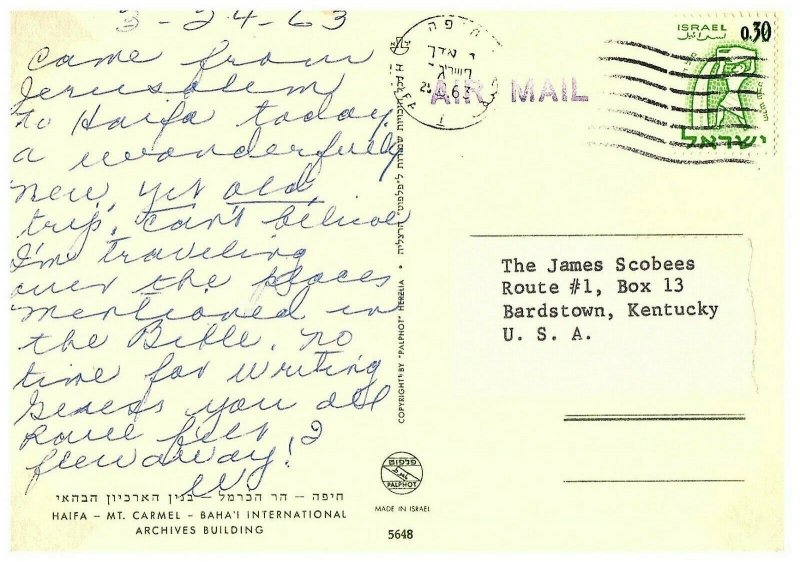 3-24-63
Came from
Jerusalem
to Haifa today
a wonderfully
new, yet old,
trip, can't believe
I'm traveling
over the places
mentioned in
the Bible. no
time for writing
Guess you all
have felt I
flew away!
חיפה – הר הכרמל – בנין הארכיון הבהאי
HAIFA – MT. CARMEL – BAHA'I INTERNATIONAL
ARCHIVES BUILDING
COPYRIGHT BY "PALPHOT" HERZLIA • כל הזכויות שמורות ל"פלפוט" הרצליה
פלפוט
PALPHOT
MADE IN ISRAEL
5648
חיפה
AIR MAIL
ISRAEL
اسرائيل
0.30
ישראל
The James Scobees
Route #1, Box 13
Bardstown, Kentucky
U. S. A.